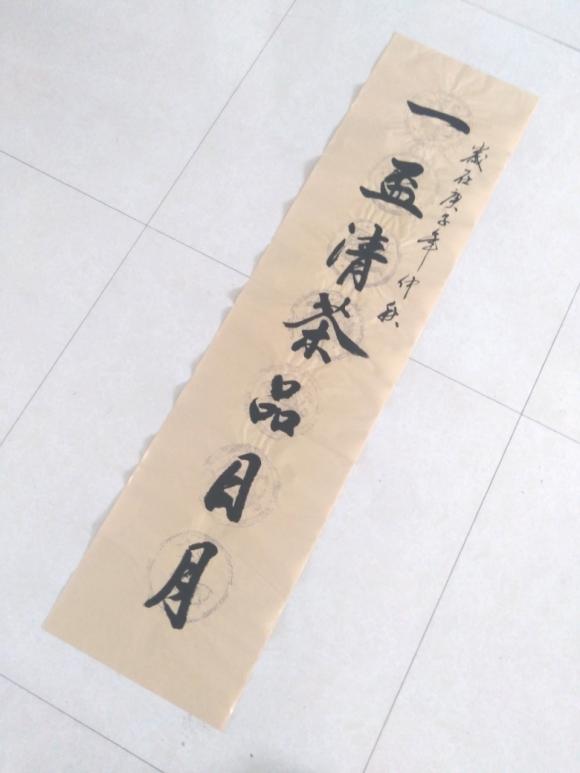 歲在庚子年 仲秋
一盃清茶品日月